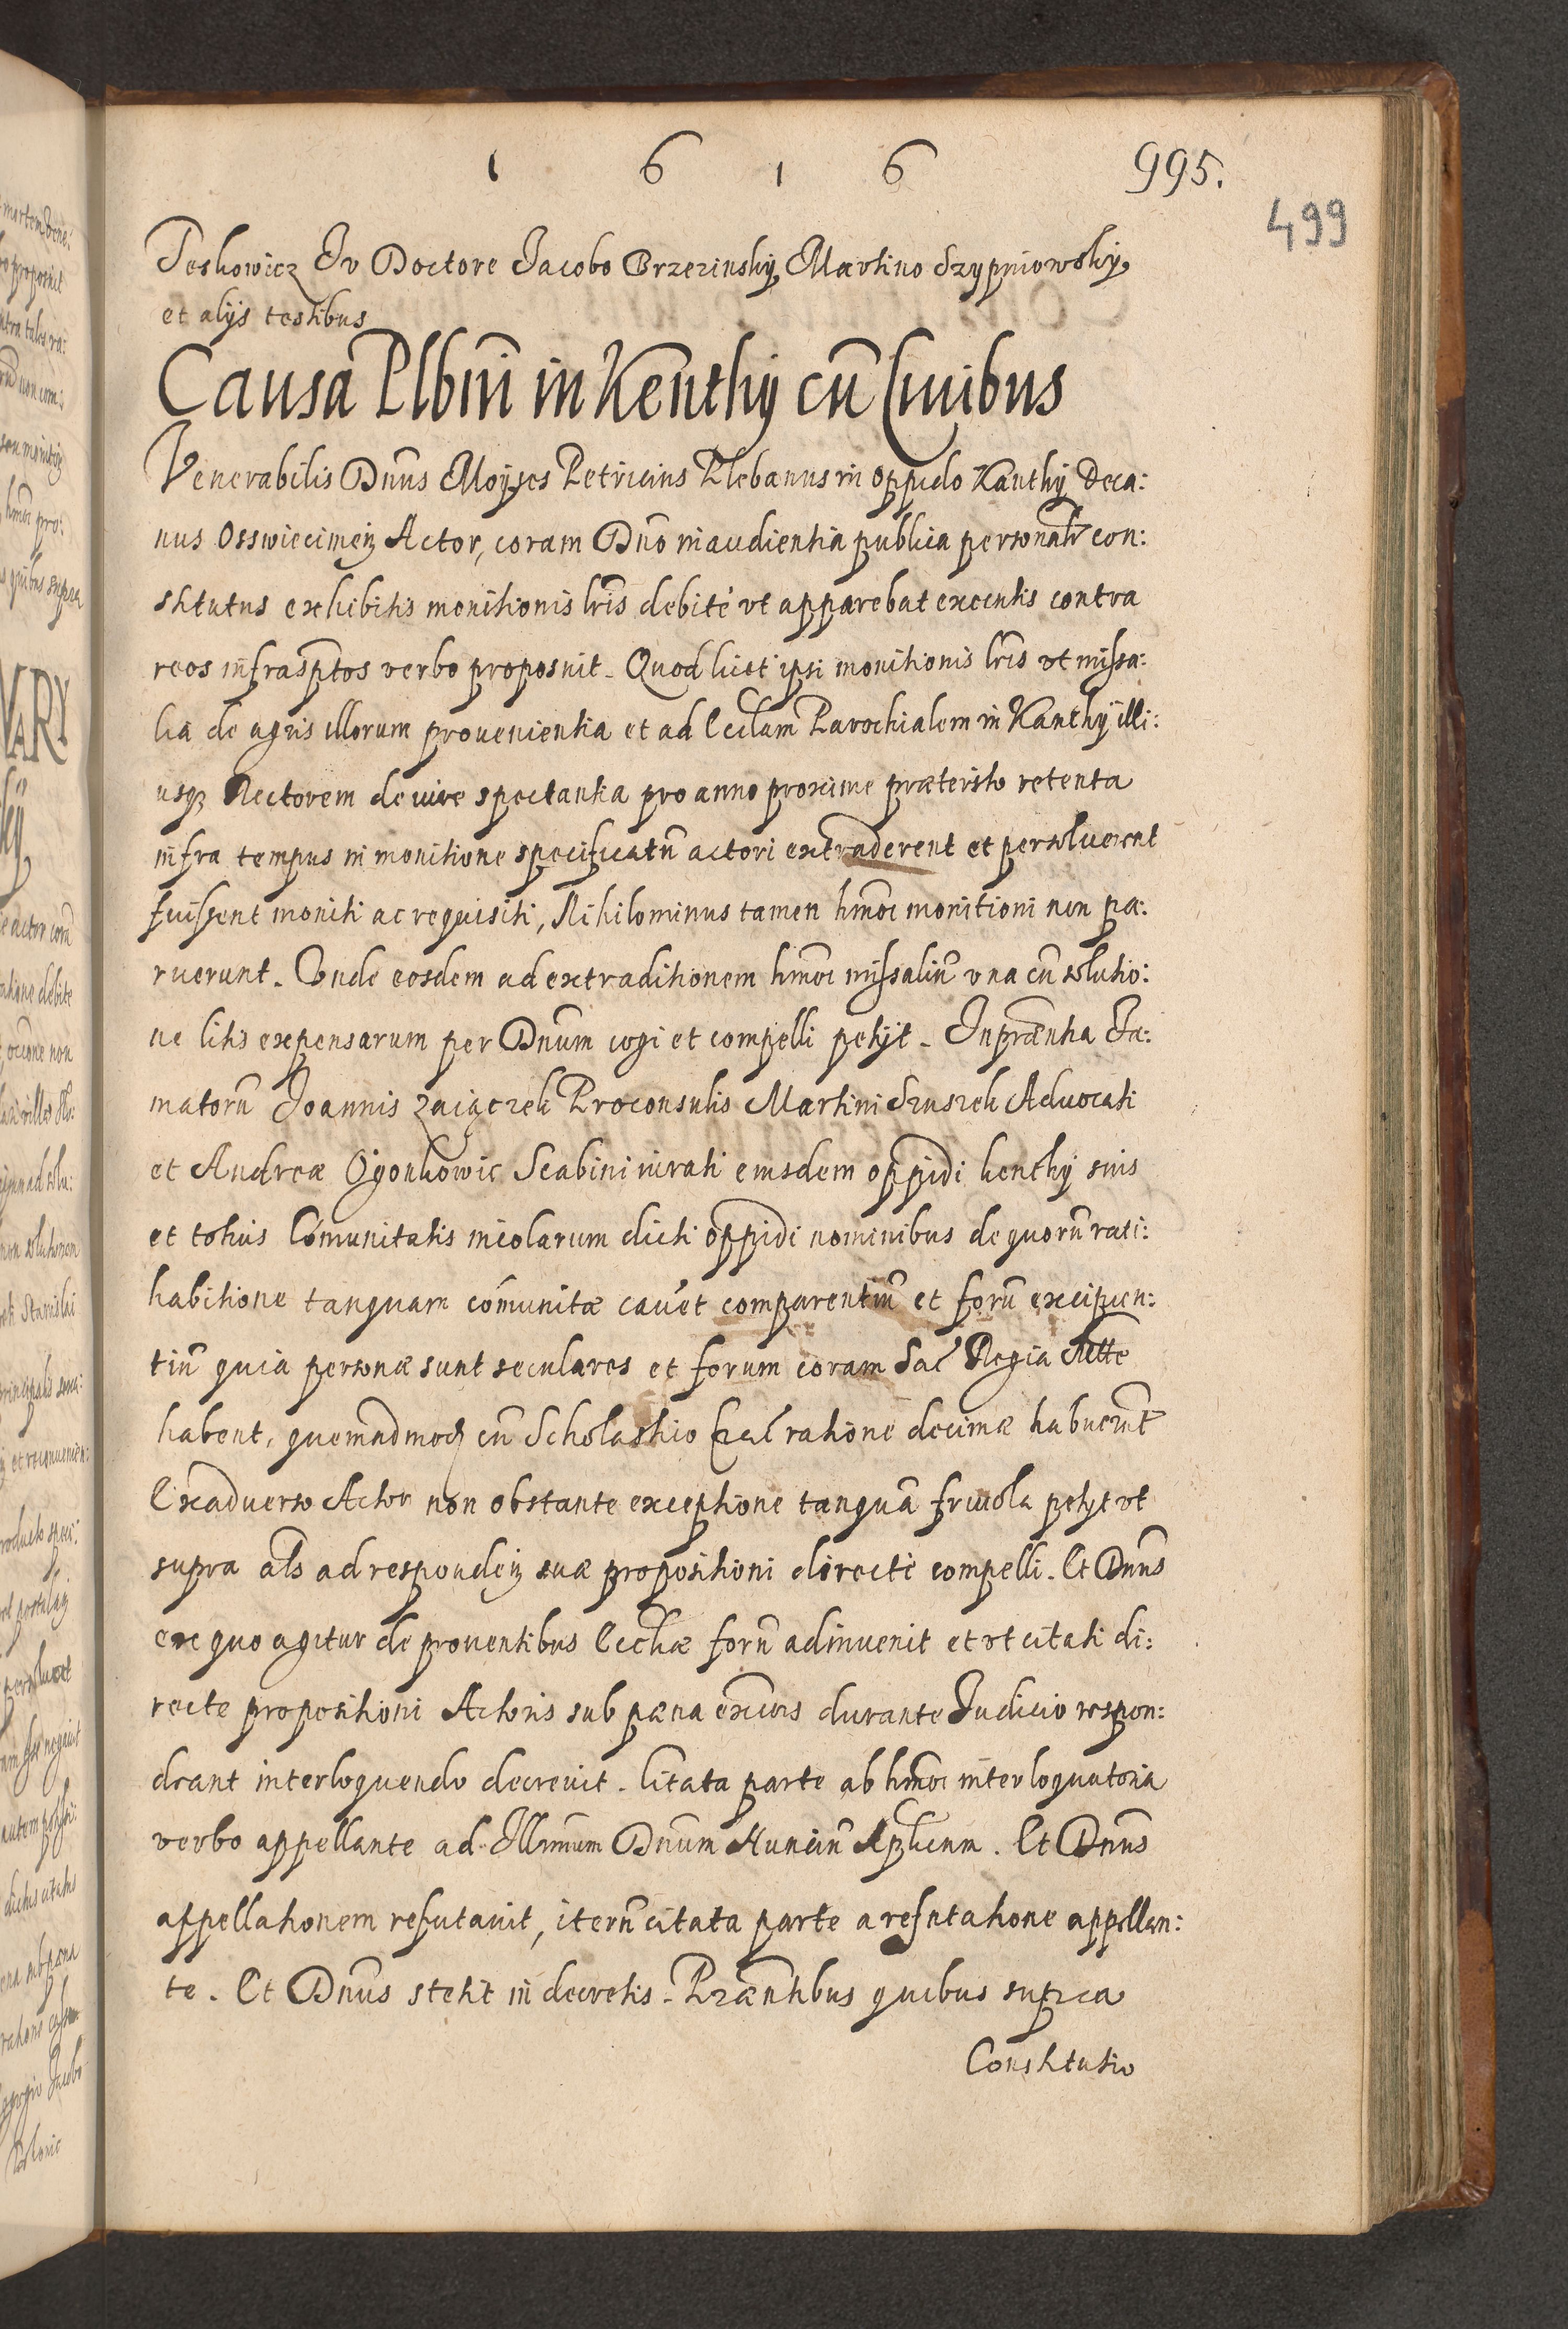 1 6 1 6 995.
499
Teskowicz Iv Doctore Jacobo Brzezinsky Martino Szypniowsky
et alÿs testibus
Causa Plbni in Kenthÿ cũ Ciuibus
Venerabilis Dnus Moÿses Petricius Plebanus in oppido Kanthÿ Deca:
nus Osswiecimeñ Actor, coram Dno in audientia publica personalr con:
stitutus exhibitis monitionis lris debite vt apparebat executis contra
reos infrasptos verbo proposuit. Quod licet ipsi monitionis lris vt missa:
lia de agris illorum prouenientia et ad Ecclam Parochialem in Kanthÿ illi:
usq₃ Rectorem de iure spectantia pro anno proxime præterito retenta
infra tempus in monitione specificatũ actori extraderent et persoluerent
fuissent moniti ac requisiti, Nihilominus tamen hmoi monitioni non pa:
ruerunt. Vnde eosdem ad extraditionem hmoi missaliũ vna cũ solutio:
ne litis expensarum per Dnum cogi et compelli petÿt. In præntia Fa:
matorũ Joannis Zaiączek Proconsulis Martini Szuszek Aduocati
et Andreæ Ogonkowic Scabini iurati eiusdem oppidi kenthÿ suis
et totius Cõmunitatis incolarum dicti oppidi nominibus de quorũ rati:
habitione tanquam cõmunitæ cauẽt comparentiũ et forũ excipien:
tiũ quia personæ sunt seculares et forum coram Sac Regia Mtte
habent, quemadmod₃ cũ Scholastico Crac ratione decimæ habuerũt
Exaduerso Actor non obstante exceptione tanquã friuola petÿt vt
supra als ad respondeñ suæ propositioni directè compelli. Et Dnus
ex quo agitur de prouentibus Ecclæ forũ adinuenit et vt citati di:
recte propositioni Actoris sub pæna excōis durante Iudicio respon:
deant interloquendo decreuit. Citata parte ab hmoi interloquutoria
verbo appellante ad Illmum Dnum Nunciũ Aplicum. Et Dnus
appellationem refutauit, iterũ citata parte a refutatione appellan:
te. Et Dnus stetit in decretis. Præntibus quibus supra
Constitutio